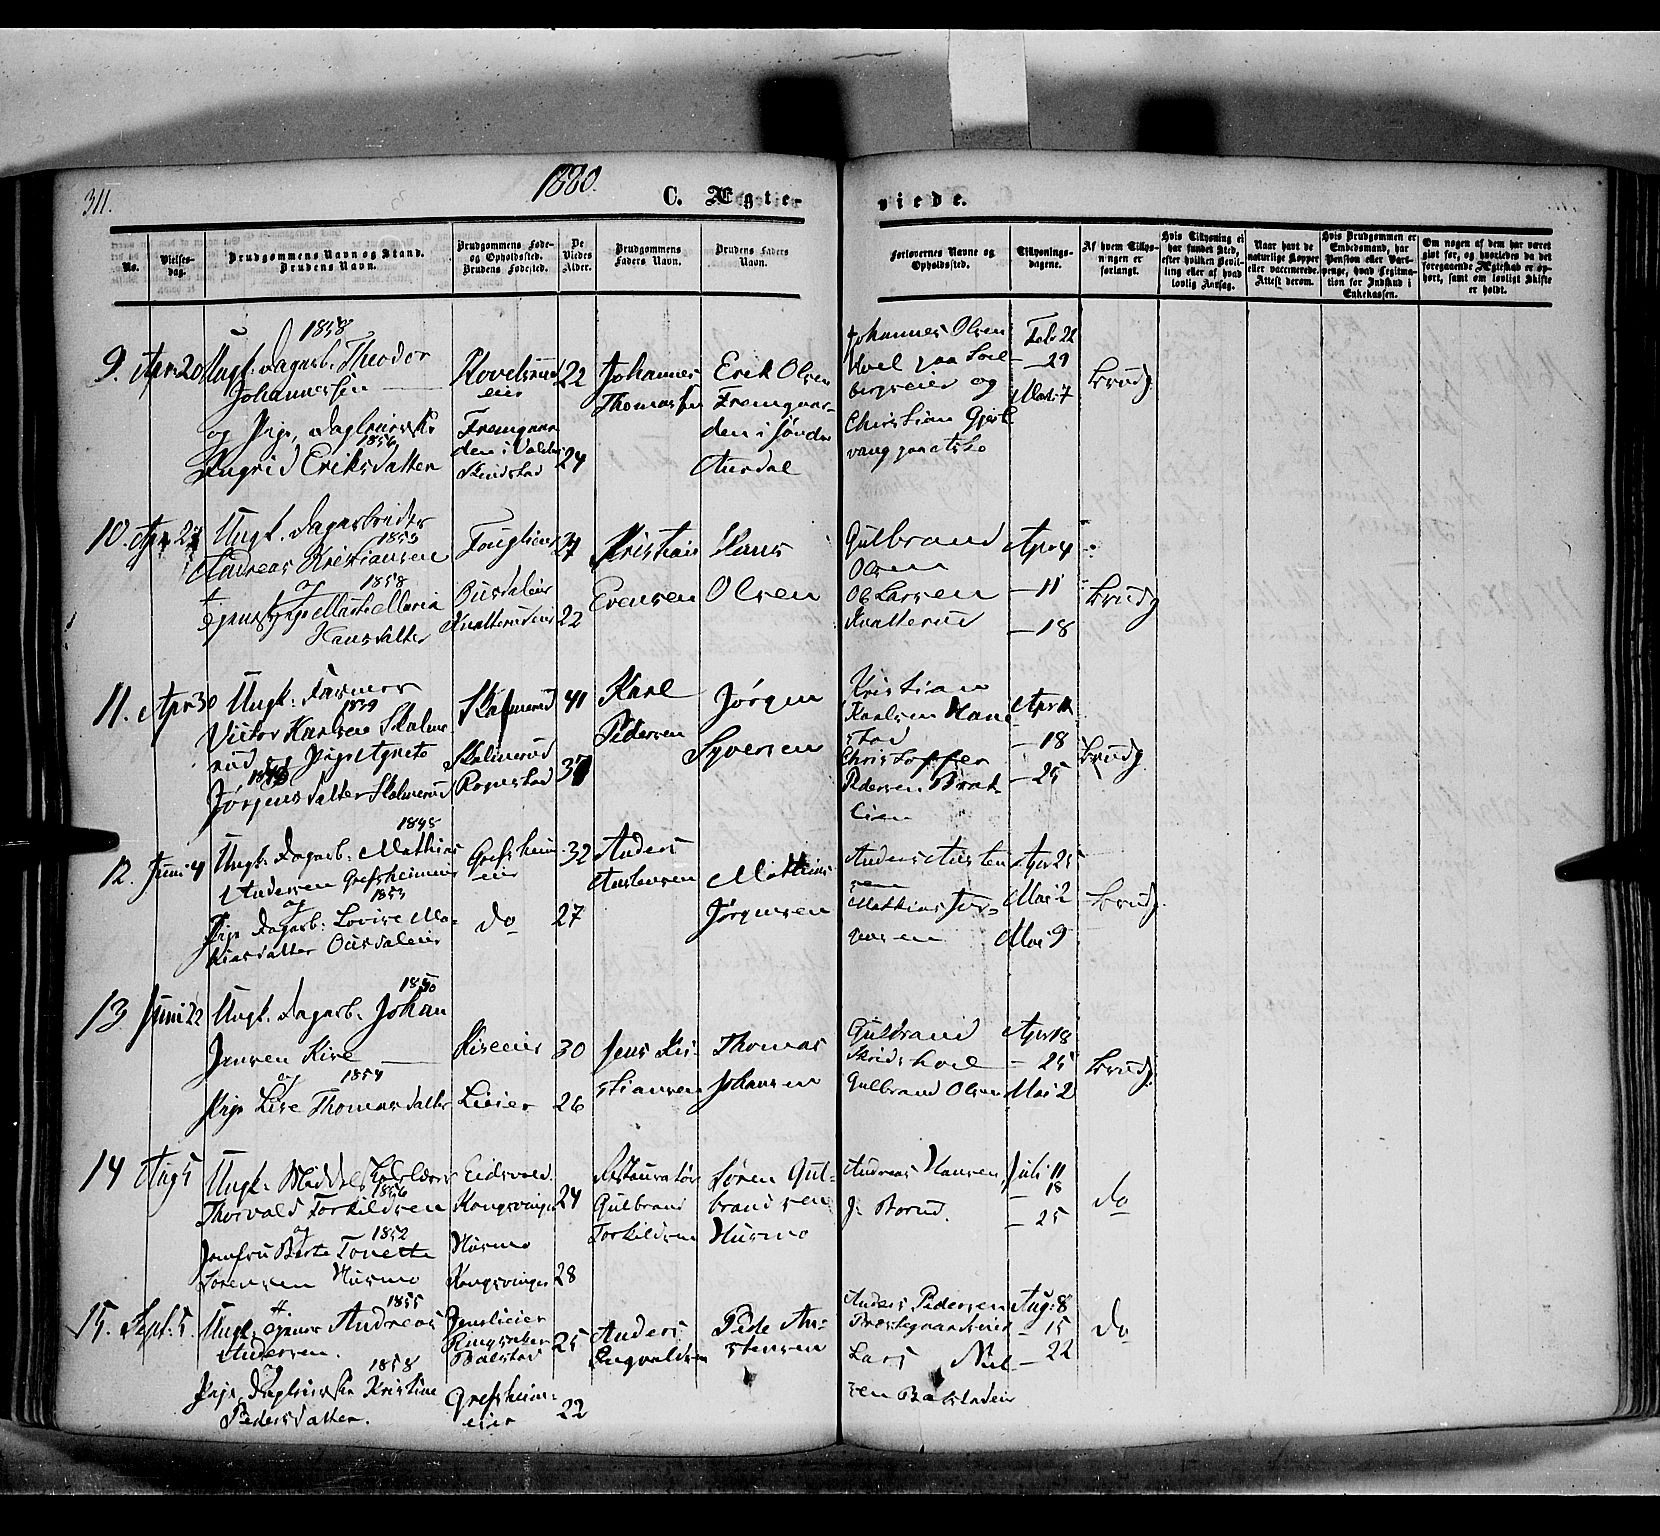 311.
1880.
C. Ægte-
viede.
No.
Vielses-
dag.
Brudgommens Navn og Stand.
Brudens Navn.
Brudgommens Føde-
og Opholdssted.
Brudens Fødested.
De
Viedes
Alder.
Brudgommens
Faders Navn.
Brudens Faders
Navn.
Forlovernes Navne og
Opholdssted.
Tillysnings-
dagene.
Af hvem Tillys-
ningen er
forlangt.
Hvis Tillysning ei
har fundet Sted,
efter hvilken Bevil-
ling eller af hvad
lovlig Aarsag.
Naar havt de
naturlige Kopper
eller vaccinerede.
Attest derom.
Hvis Brudgommen er
Embedsmand, har
Pension eller Vart-
penge, hvad Legitima-
tion for Indskud i
Enkekassen.
Om nogen af dem har været
givt før, og hvorledes da det
foregaaende Ægteskab er op-
hørt, samt om lovligt Skifte
er holdt.
9. Apr. 20
1858
Ungk. Dagarb. Theodor
Johannessen
og Pige,
1856
Ingrid Eriksdatter
eier
22
24
Johannes
Thomassen
Erik Olsen
Fremgaar-
den i Søndre
Aurdal
Johannes Olsen
Christian
Feb. 22
— 29
Marts 7
Brudg.
10. Apr. 27
Ungk. Dagarbeider
1853
Andreas Kristiansen
og 1858
Pige Marthe Maria
Hansdatter
Ousdaleier
Knatterudeier
27
22
Kristian
Evensen
Hans
Olsen
Gulbrand
Olsen
Ole Larsen
Knatterud
Apr 4
— 11
— 18
Brudg
11. Apr. 30
Ungk. Farmer
1839
Victor Karlsen Skalme
rud Pige Agnete
Jørgensdatter Skalmerud
Skalmerud
Skalmerud
Rognstad
41
37
Karl
Pedersen
Jørgen
Syversen
Kristian
Karlsen Hane
stad
Christoffer
Pedersen Brat
lien
Apr 11
— 18
— 25
Brudg.
12. Juni 4
1848
Ungk. Dagarb. Mathias
Andersen Grefsheimeier
og 1853
Pige Dagarb. Lovise Ma-
thiasdatter Ousdaleier
Grefsheim-
eier
do
32
27
Anders
Mathias
Jørgensen
Anders
Mathias Jør-
gensen
Apr 25
Mai 2
Mai 9
Brudg.
13 Juni 22
1850
Ungk. Dagarb. Johan
Jensen Kise
og 1854
Pige Lise Thomasdatter
Kiseeier
Lieier
30
26
Jens Kri-
stiansen
Thomas
Johansen
Gulbrand
Skredshoel
Gulbrand Olsen
Apr 18
— 25
Mai 2
Brudg.
14 Aug 5
Ungk.
1856
Thorvald Torkildsen
og 1852
Jomfru Berte Tonette
Sørensen Husmo
Eidsvold.
Kongsvinger
Husmo
Kongsvinger
24
28
Restauratør
Gulbrand
Torkildsen
Søren Gul-
brandsen
Husmo
Andreas Hansen
Juli 11
— 18
— 25
do
15. Sept. 5.
1855
Ungk. Tjener Andreas
Andersen.
og 1858
Pige, Kristine
Pedersdatter.
Jenslieier
Ringsaker
Balstad
Grefsheim-
eier
25
22
Anders
Engvaldsen
Peder An-
stensen
Anders Pedersen
Præstegaardseier
Lars Niel
sen
Aug. 8
— 15
— 22
do